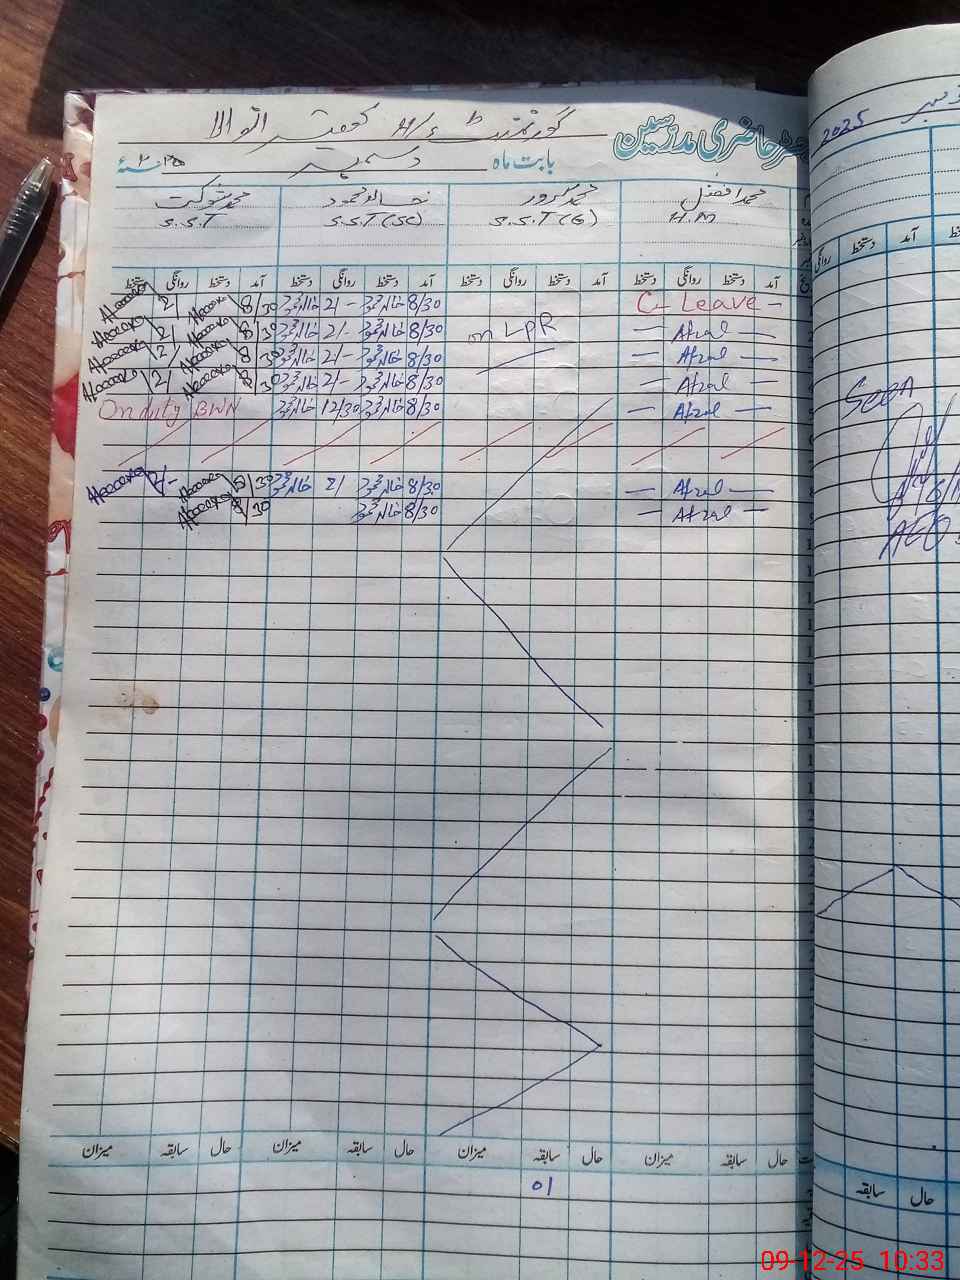 رجسٹر حاضری مدرسین گورنمنٹ H/S
بابت ماہ دسمبر ۲۰۲۵ء
محمد افضل محمد سرور خالد محمود محمد شوکت
H.M S.S.T (G) S.S.T (SC) S.S.T
آمد دستخط روانگی دستخط آمد دستخط روانگی دستخط آمد دستخط روانگی دستخط آمد دستخط روانگی دستخط
C- Leave - 8/30 خالد محمود 2/- خالد محمود 8/30 2/
— Afzal — on LPR 8/30 خالد محمود 2/- خالد محمود 8/30 2/
— Afzal — 8/30 خالد محمود 2/- خالد محمود 8/30 2/
— Afzal — 8/30 خالد محمود 2/- خالد محمود 8/30 2/
— Afzal — 8/30 خالد محمود 12/30 خالد محمود On duty BWN
— Afzal — 8/30 خالد محمود 2/ خالد محمود 8/30 2/-
— Afzal — 8/30 خالد محمود 8/30
حال سابقہ میزان حال سابقہ میزان حال سابقہ میزان حال سابقہ میزان
01
دسمبر 2025
آمد دستخط روانگی
Seen
AEO
حال سابقہ
09-12-25 10:33